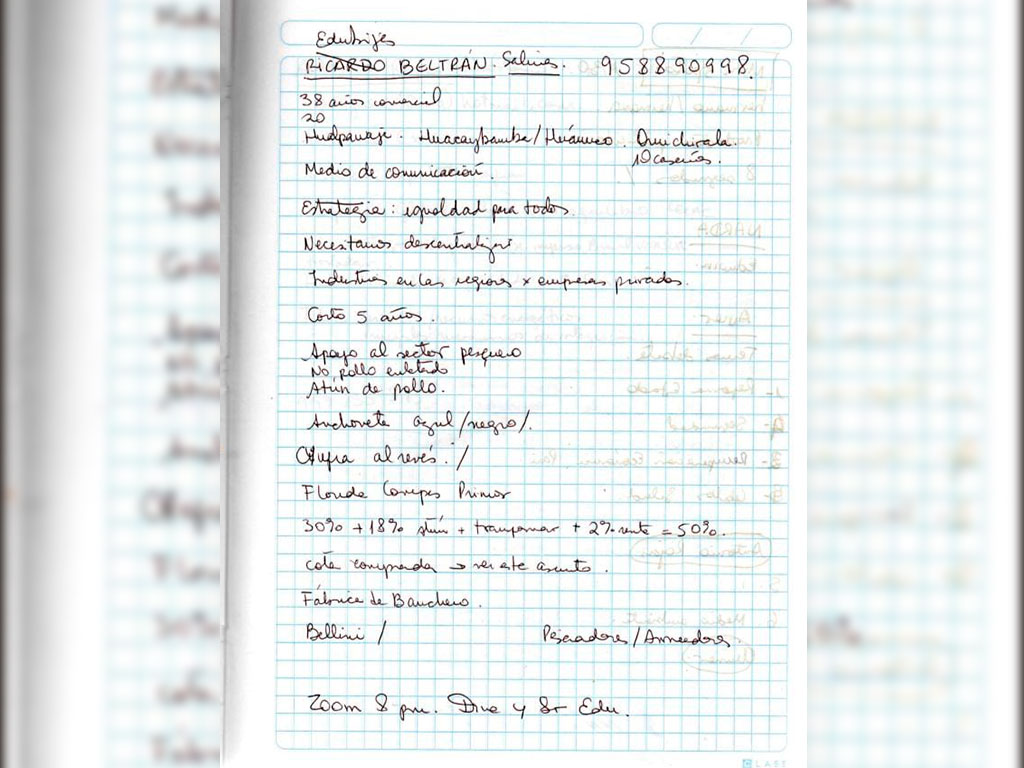 Edubijes
RICARDO BELTRÁN. Salinas. 958890998.
38 años comercial
20
Huacaybamba/Huánuco.
10 caseríos.
Medio de comunicación.
Estrategia: igualdad para todos.
Necesitamos descentralizar
Industrias en las regiones x empresas privadas.
Corto 5 años.
Apoyo al sector pesquero
No pollo enlatado
Atún de pollo.
Anchoveta azul/negro/.
al revés. /
Florida Campos Primor
30% + 18% + + 2% renta = 50%.
cota comprada → ver este asunto.
Fábrica de Banchero.
Bellini / Pescadores/Armadores
Zoom 8 pm. y Sr Edu.
CLASS